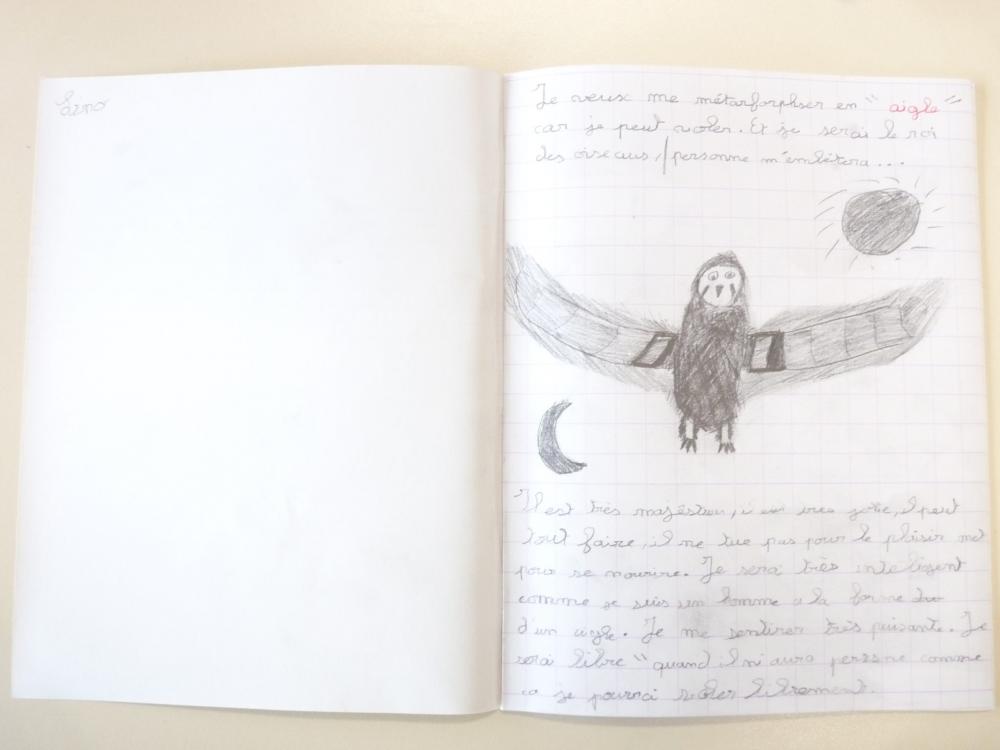 Je veux me métarforphser en " aigle "
car je peut voler. Et je serai le roi
des oiseaus, / personne m'embêtera...
Il est très majesteu, il est très jolie, il peut
tout faire, il ne tue pas pour le plaisir met
pour se nourire. Je serai très inteligent
comme je suis un homme a la forme
d'un aigle. Je me sentirer très puisante. Je
serai libre " quand il n'aura persone comme
ça je pourai voler librement.